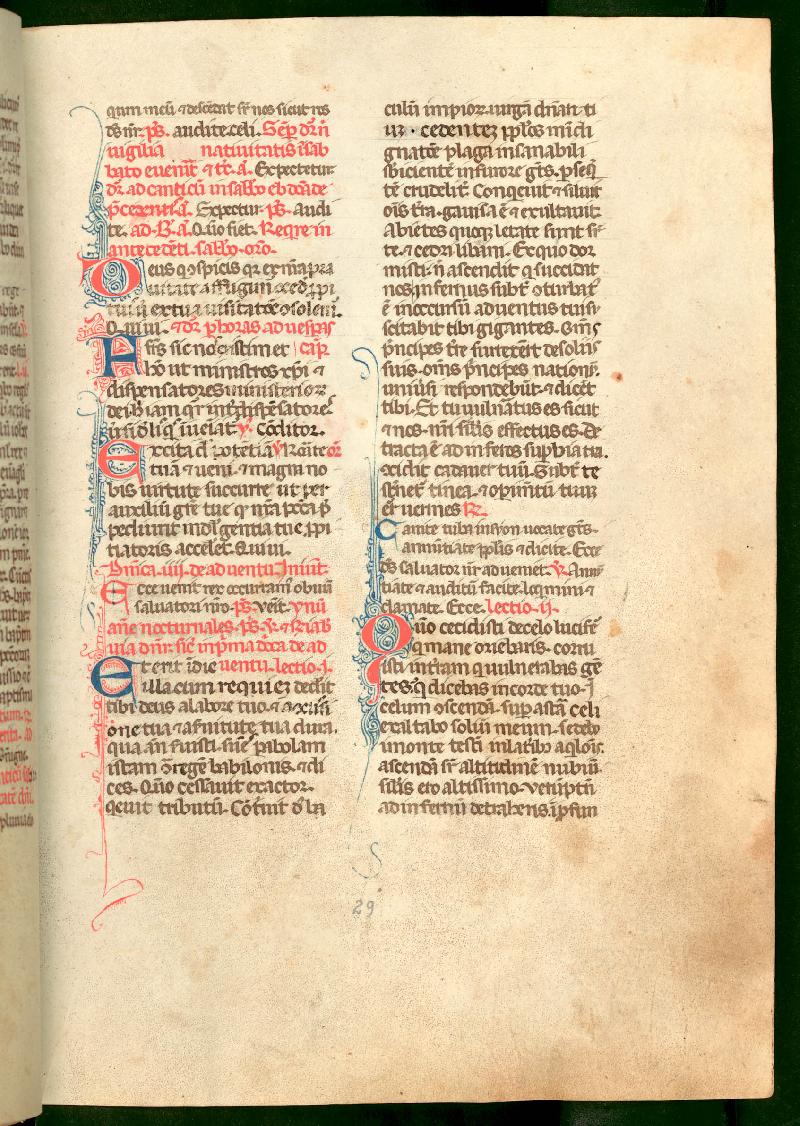 quam meū ⁊ descēdat sr̄ nos sicut ros
ds̄ nr̄. ps̄. audite celi.
uigilia natiuitatis ī sab
bato euenit̄ ⁊ tc̄. a. Expectetur
dr̄ ad canticū in sabbo
Expectur. ps̄. Audi
te. ad .B. a. Quō fiet. Reqre in
antecedēti sabbo. oro.
Deus q ɔspicis qr ex nr̄a pra
uitate affligimur ɔcede ppi
tuī ut ex tua uisitatōe ɔsolem̄.
Q uiuis. ad uesp̄as
sic nos existimet cap̄
hō ut ministros xp̄i ⁊
dispensatores ministerioꝝ
dei. iam qr int̄ dispēsatores
ut fidelis q̄ īueiat̄. ꝟ. Cōditor.
Excita dn̄e potētiā oro
tuā ⁊ ueni. ⁊ magna no
bis uirtute succurre ut per
auxiliū gr̄e tue q̄ nr̄a pcc̄a p̄
pediunt indlgentia tue ppi
tiatoris acceleret. Q uiuis.
Dn̄ica .iiij. de aduentu Inuit̄.
Ecce uenit rex occurram̄ obuiā
saluatori nr̄o. ps̄. Venit. ynn̄
an̄e nocturnales. ps̄. ꝟ. ⁊
sic̄ in p̄ma dn̄ica de ad
Et erit ī die uentu. lectio .j.
illa cum requiez dederit
tibi deus a labore tuo. ⁊ a ɔcussi
one tua ⁊ a ſuitute tua dura.
qua an̄ seruisti. sumes pabolam
istam ɔtra regē babilonis. ⁊ di
ces. Quō cessauit exactor.
qeuit tributū. Cōtriuit ds̄ ba
culū impioꝝ. uirgā dn̄anti
uꝫ. cedentez pplos in īdi
gnatōe plaga insanabili
sbicientē in furore gtes. pseqn̄
tē crudelit̄. Conqeuit ⁊ siluit
oīs tr̄a. gauisa ē ⁊ exultauit.
Abietes quoqꝫ letate sunt sr̄
te. ⁊ cedri libani. Ex quo dor
misti. n̄ ascendit q succidat
nos. infernus subt̄ ɔturbat̄
ē in occursū aduentus tui. su
scitabit tibi gigantes. Oms
p̄ncipes tr̄e surrexer̄t de soliis
suis. oms p̄ncipes nationū.
uniūsi respondebūt ⁊ dicēt
tibi. Et tu uulnatus es sicut
⁊ nos. nr̄i silis effectus es. De
tracta ē ad inferos supbia tua.
ɔcidit cadauer tuū. Subt̄ te
sternet̄ tinea. ⁊ opimtū tuū
er̄t uermes. ℟.
Canite tuba in syon uocate gtes.
annūtiate pplis ⁊ dicite. Ecce
ds̄ saluator nr̄ adueniet. ꝟ. Annū
tiate ⁊ auditū facite. loqmini ⁊
clamate. Ecce. lectio .ij.
Quō cecidisti de celo lucifer̄
q mane oriebaris. corru
isti in tr̄am q uulnerabas gē
tes. q dicebas in corde tuo. ī
celum ɔscendā. sup astra celi
exaltabo soliū meum. sedebo
in monte testī in laterib aqlonis.
ascendā sr̄ altitudinē nubiū.
silis ero altissimo. Verūptn̄
ad infernū detraheris. ī pfun
29